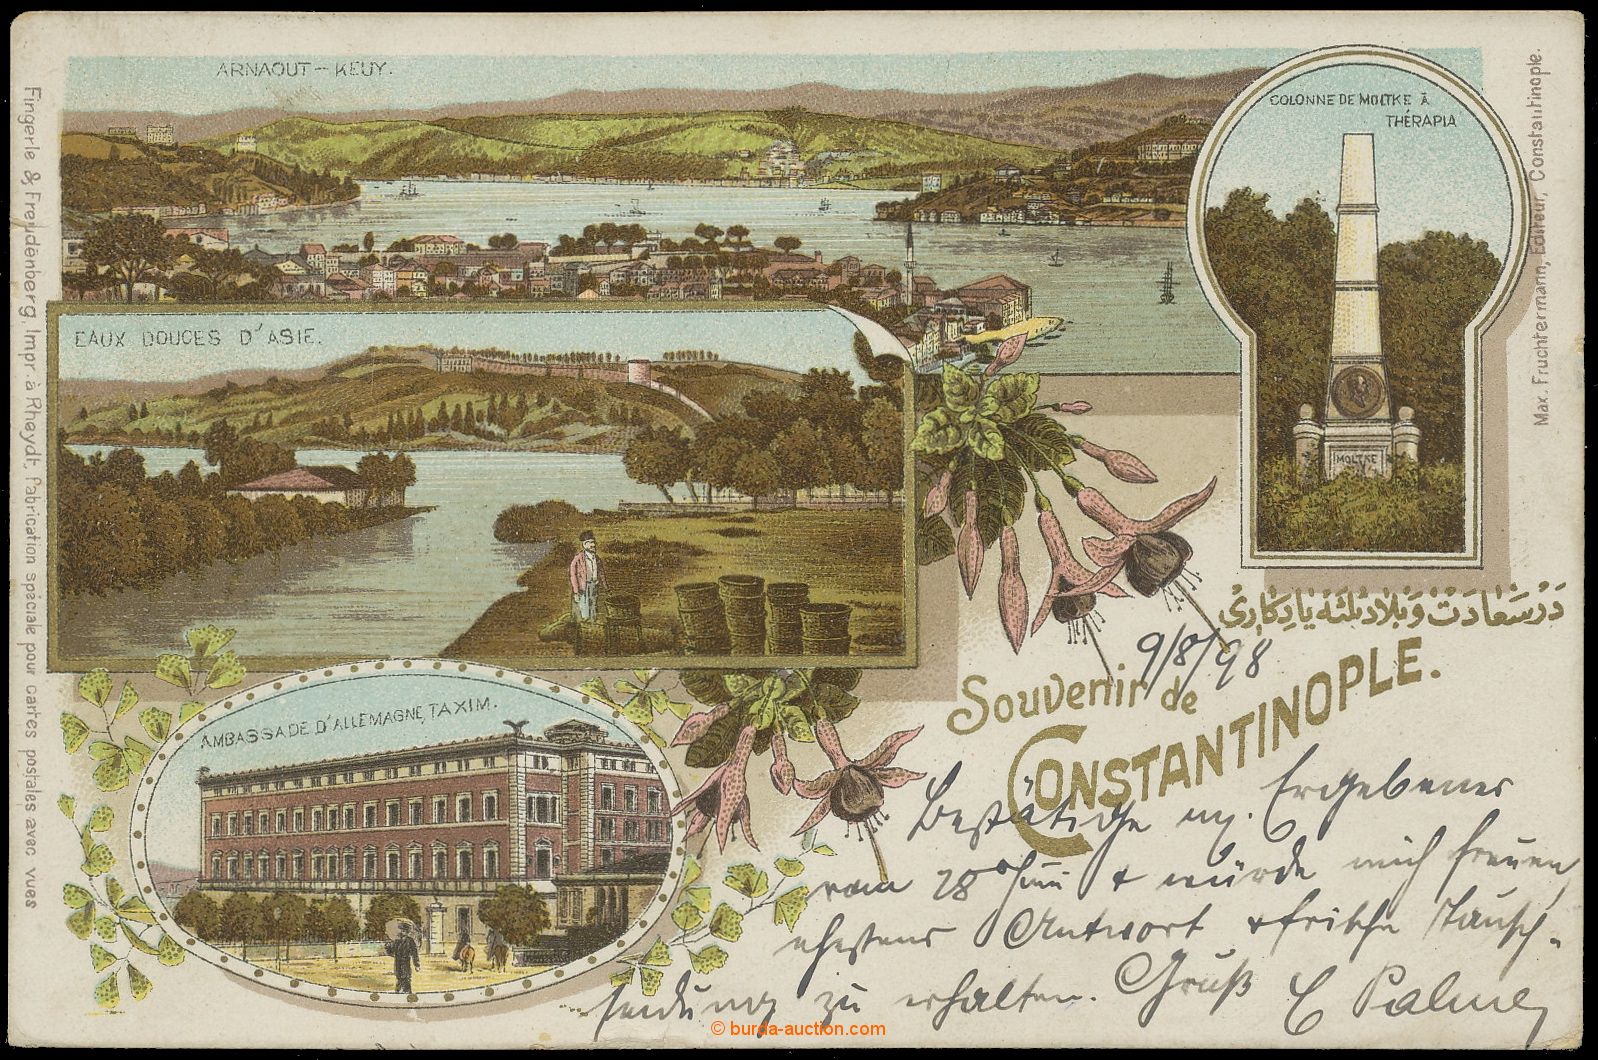 ARNAOUT - KEUY.
COLONNE DE MOLTKE À
THÉRAPIA
MOLTKE
EAUX DOUCES D'ASIE.
AMBASSADE D'ALLEMAGNE, TAXIM.
Fingerle & Freudenberg, Impr. à Rheydt, fabrication spéciale pour cartes postales avec vues
Max. Fruchtermann, Editeur, Constantinople.
در سعادت و بلاد ثلثه یادکاری
9/8/98
Souvenir de
CONSTANTINOPLE.
Bestätige m. Ergebenes
vom 28 Juni & würde mich freuen,
ehestens Antwort & frische Tausch-
sendung zu erhalten. Gruß C Palmer
© burda-auction.com